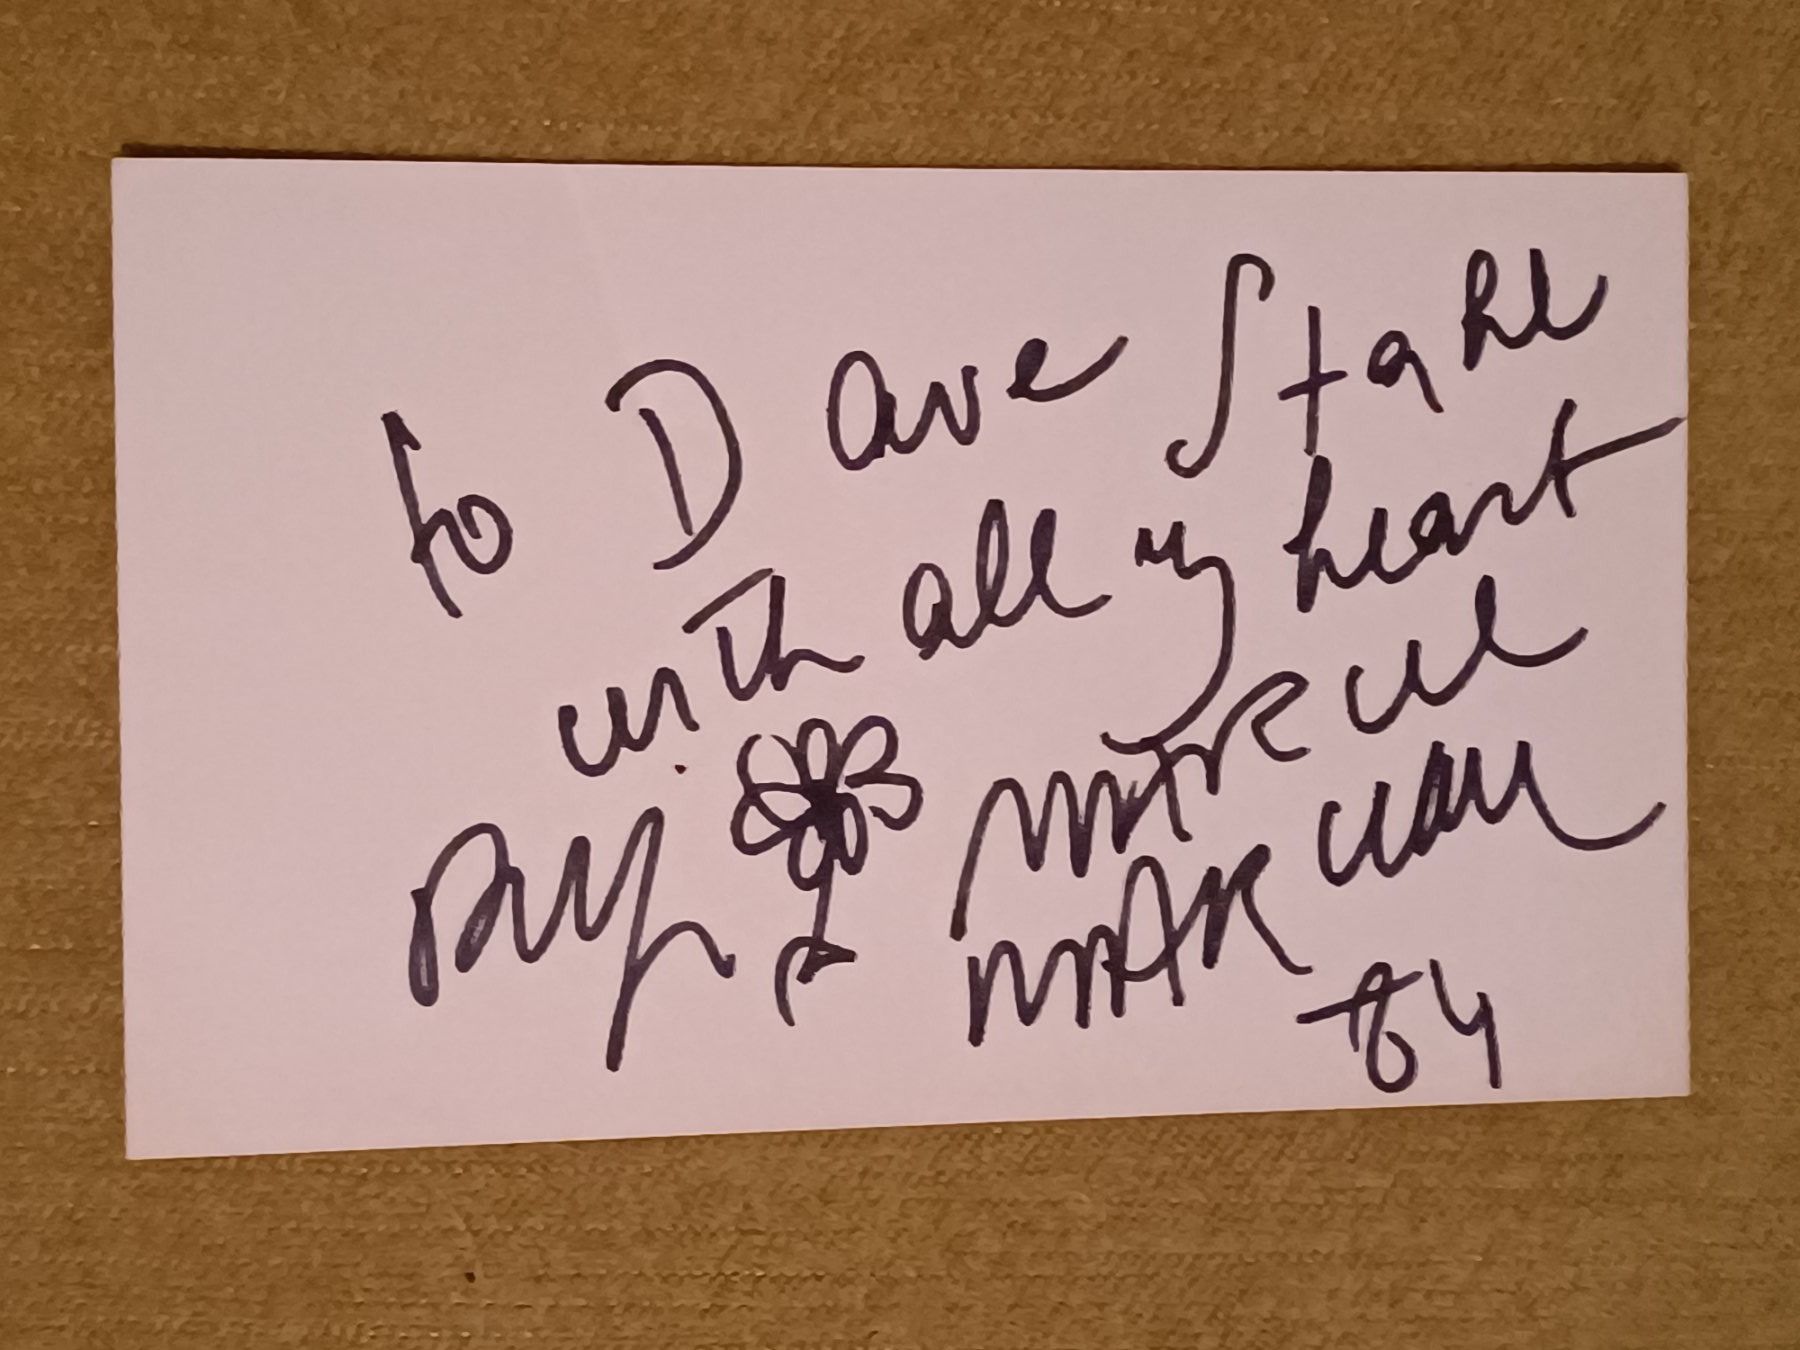 to Dave Stahl
with all my heart
Marcel
Marceau
84